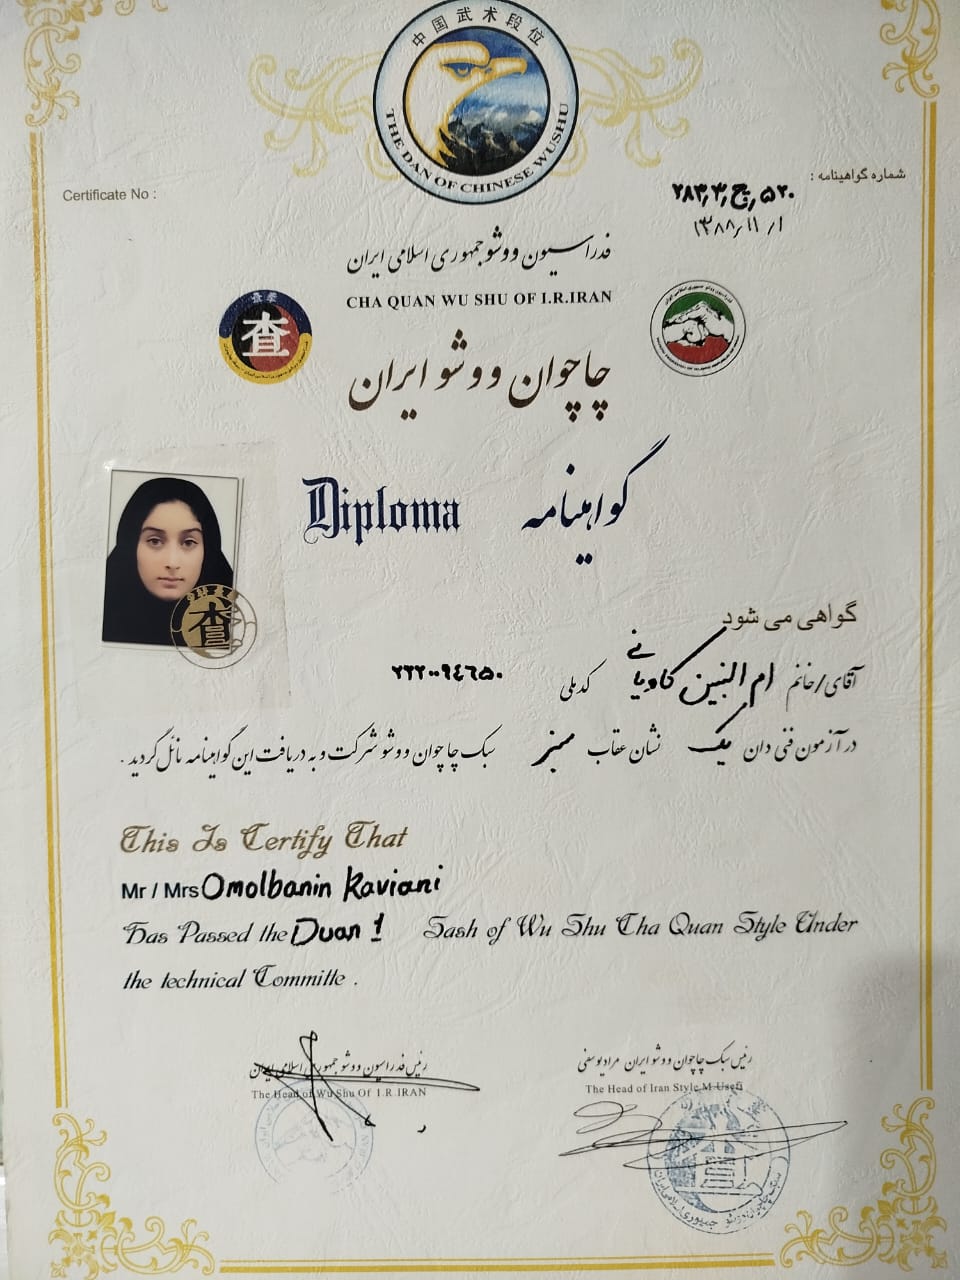 中国武术段位
THE DAN OF CHINESE WUSHU
Certificate No :
شماره گواهینامه :
۲۸۳٫۳٫ج٫۵۲۰
۱۳۸۸٫۱۱٫۱
فدراسیون ووشو جمهوری اسلامی ایران
CHA QUAN WU SHU OF I.R.IRAN
查
چاچوان ووشو ایران
Diploma گواهینامه
گواهی می شود
آقای/خانم ام البنین کاویانی کد ملی ۲۲۲۰۰۹٤٦۵۰
در آزمون فنی دان یک نشان عقاب سبز سبک چاچوان ووشو شرکت و به دریافت این گواهینامه نائل گردید .
This Is Certify That
Mr / Mrs Omolbanin Kaviani
Has Passed the Duan 1 Sash of Wu Shu Cha Quan Style Under
the technical Committe .
رئیس سبک چاچوان ووشو ایران مراد یوسفی
The Head of Iran Style M.Usefi
رئیس فدراسیون ووشو جمهوری اسلامی ایران
The Head of Wu Shu Of I.R.IRAN